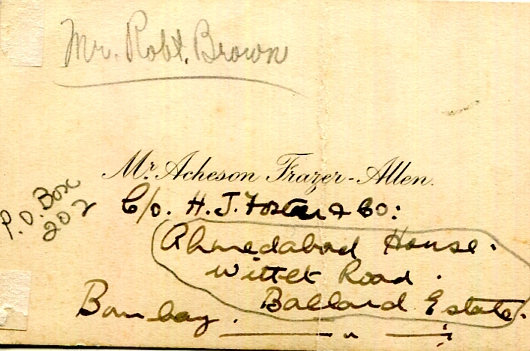 Mr. Robt. Brown
Mr. Acheson Frazer-Allen.
P.O. Box
202
C/o. H. J. Foster & Co:
Ahmedabad House.
Wittet Road.
Ballard Estate.
Bombay.